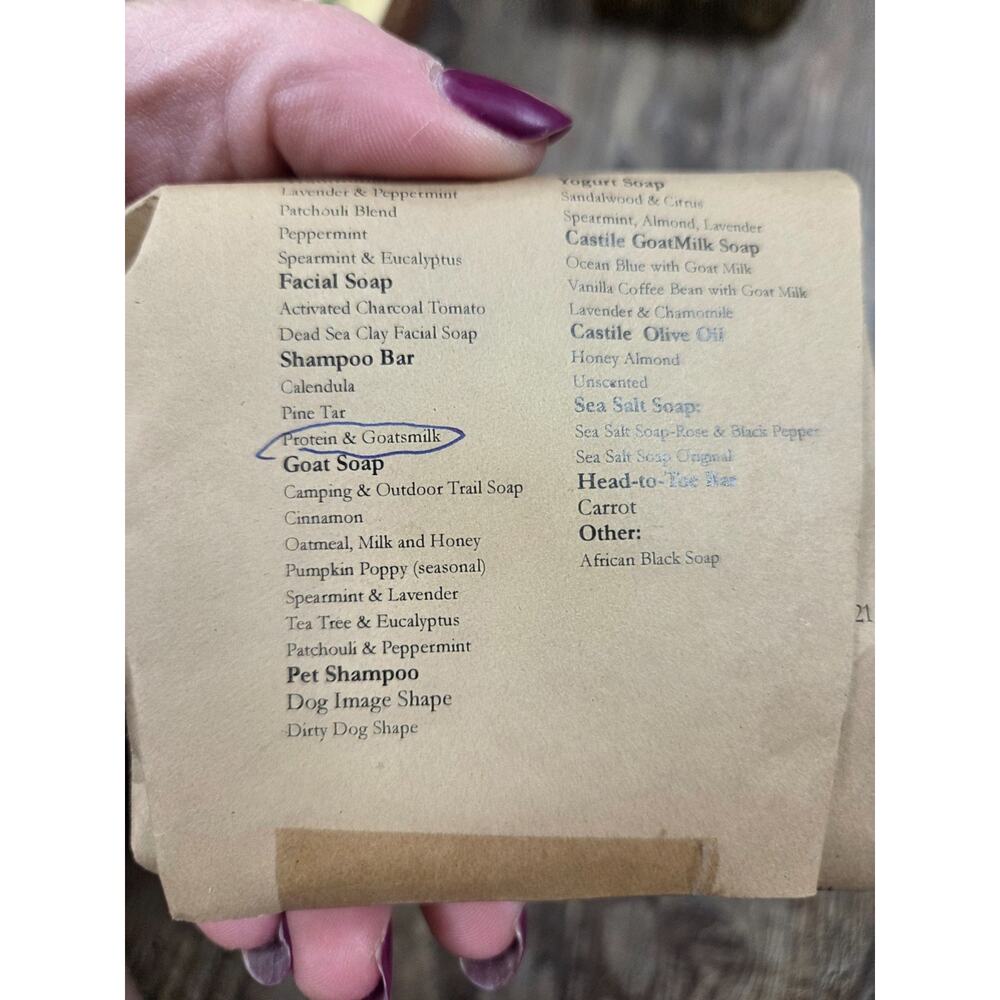 Lavender & Peppermint
Patchouli Blend
Peppermint
Spearmint & Eucalyptus
Facial Soap
Activated Charcoal Tomato
Dead Sea Clay Facial Soap
Shampoo Bar
Calendula
Pine Tar
Protein & Goatsmilk
Goat Soap
Camping & Outdoor Trail Soap
Cinnamon
Oatmeal, Milk and Honey
Pumpkin Poppy (seasonal)
Spearmint & Lavender
Tea Tree & Eucalyptus
Patchouli & Peppermint
Pet Shampoo
Dog Image Shape
Dirty Dog Shape
Yogurt Soap
Sandalwood & Citrus
Spearmint, Almond, Lavender
Castile GoatMilk Soap
Ocean Blue with Goat Milk
Vanilla Coffee Bean with Goat Milk
Lavender & Chamomile
Castile Olive Oil
Honey Almond
Unscented
Sea Salt Soap:
Sea Salt Soap-Rose & Black Pepper
Sea Salt Soap Original
Head-to-Toe Bar
Carrot
Other:
African Black Soap
21